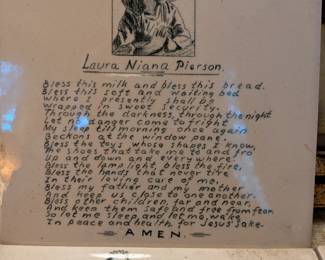 Laura Niana Pierson
Bless this milk and bless this bread.
Bless this soft and waiting bed
Where I presently shall be
Wrapped in sweet security.
Through the darkness, through the night
Let no danger come to fright
My sleep till morning once again
Beckons at the window pane.
Bless the toys whose shapes I know,
The shoes that take me to and fro
Up and down and everywhere.
Bless the lamplight, bless the fire,
Bless the hands that never tire
In their loving care of me,
Bless my father and my mother
And keep us close to one another.
Bless other children, far and near,
And keep them safe and free from fear.
So let me sleep and let me wake
In peace and health for Jesus' Sake.
AMEN